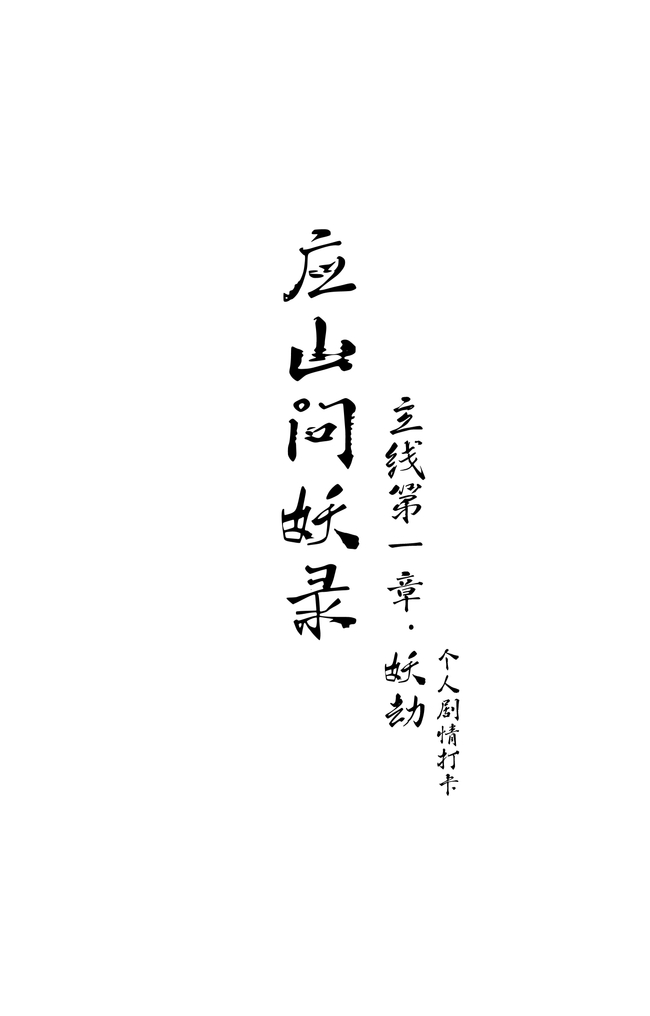 应山问妖录
主线第一章·妖劫
个人剧情打卡